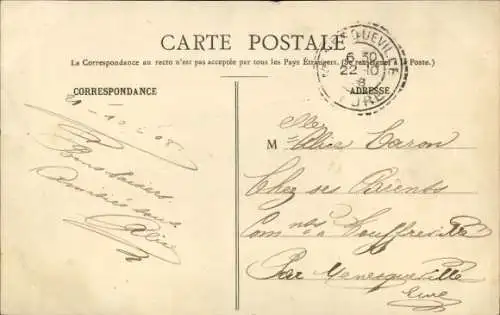 CARTE POSTALE
La Correspondance au recto n'est pas acceptée par tous les Pays Étrangers. (Se renseigner à la Poste.)
CORRESPONDANCE
ADRESSE
6 30
22 10
8
EURE
21-10-08
Bons baisers
Amitiés
Alice
M elle Alice Caron
Chez ses Parents
Com nes à Touffreville
Par Menesqueville
Eure